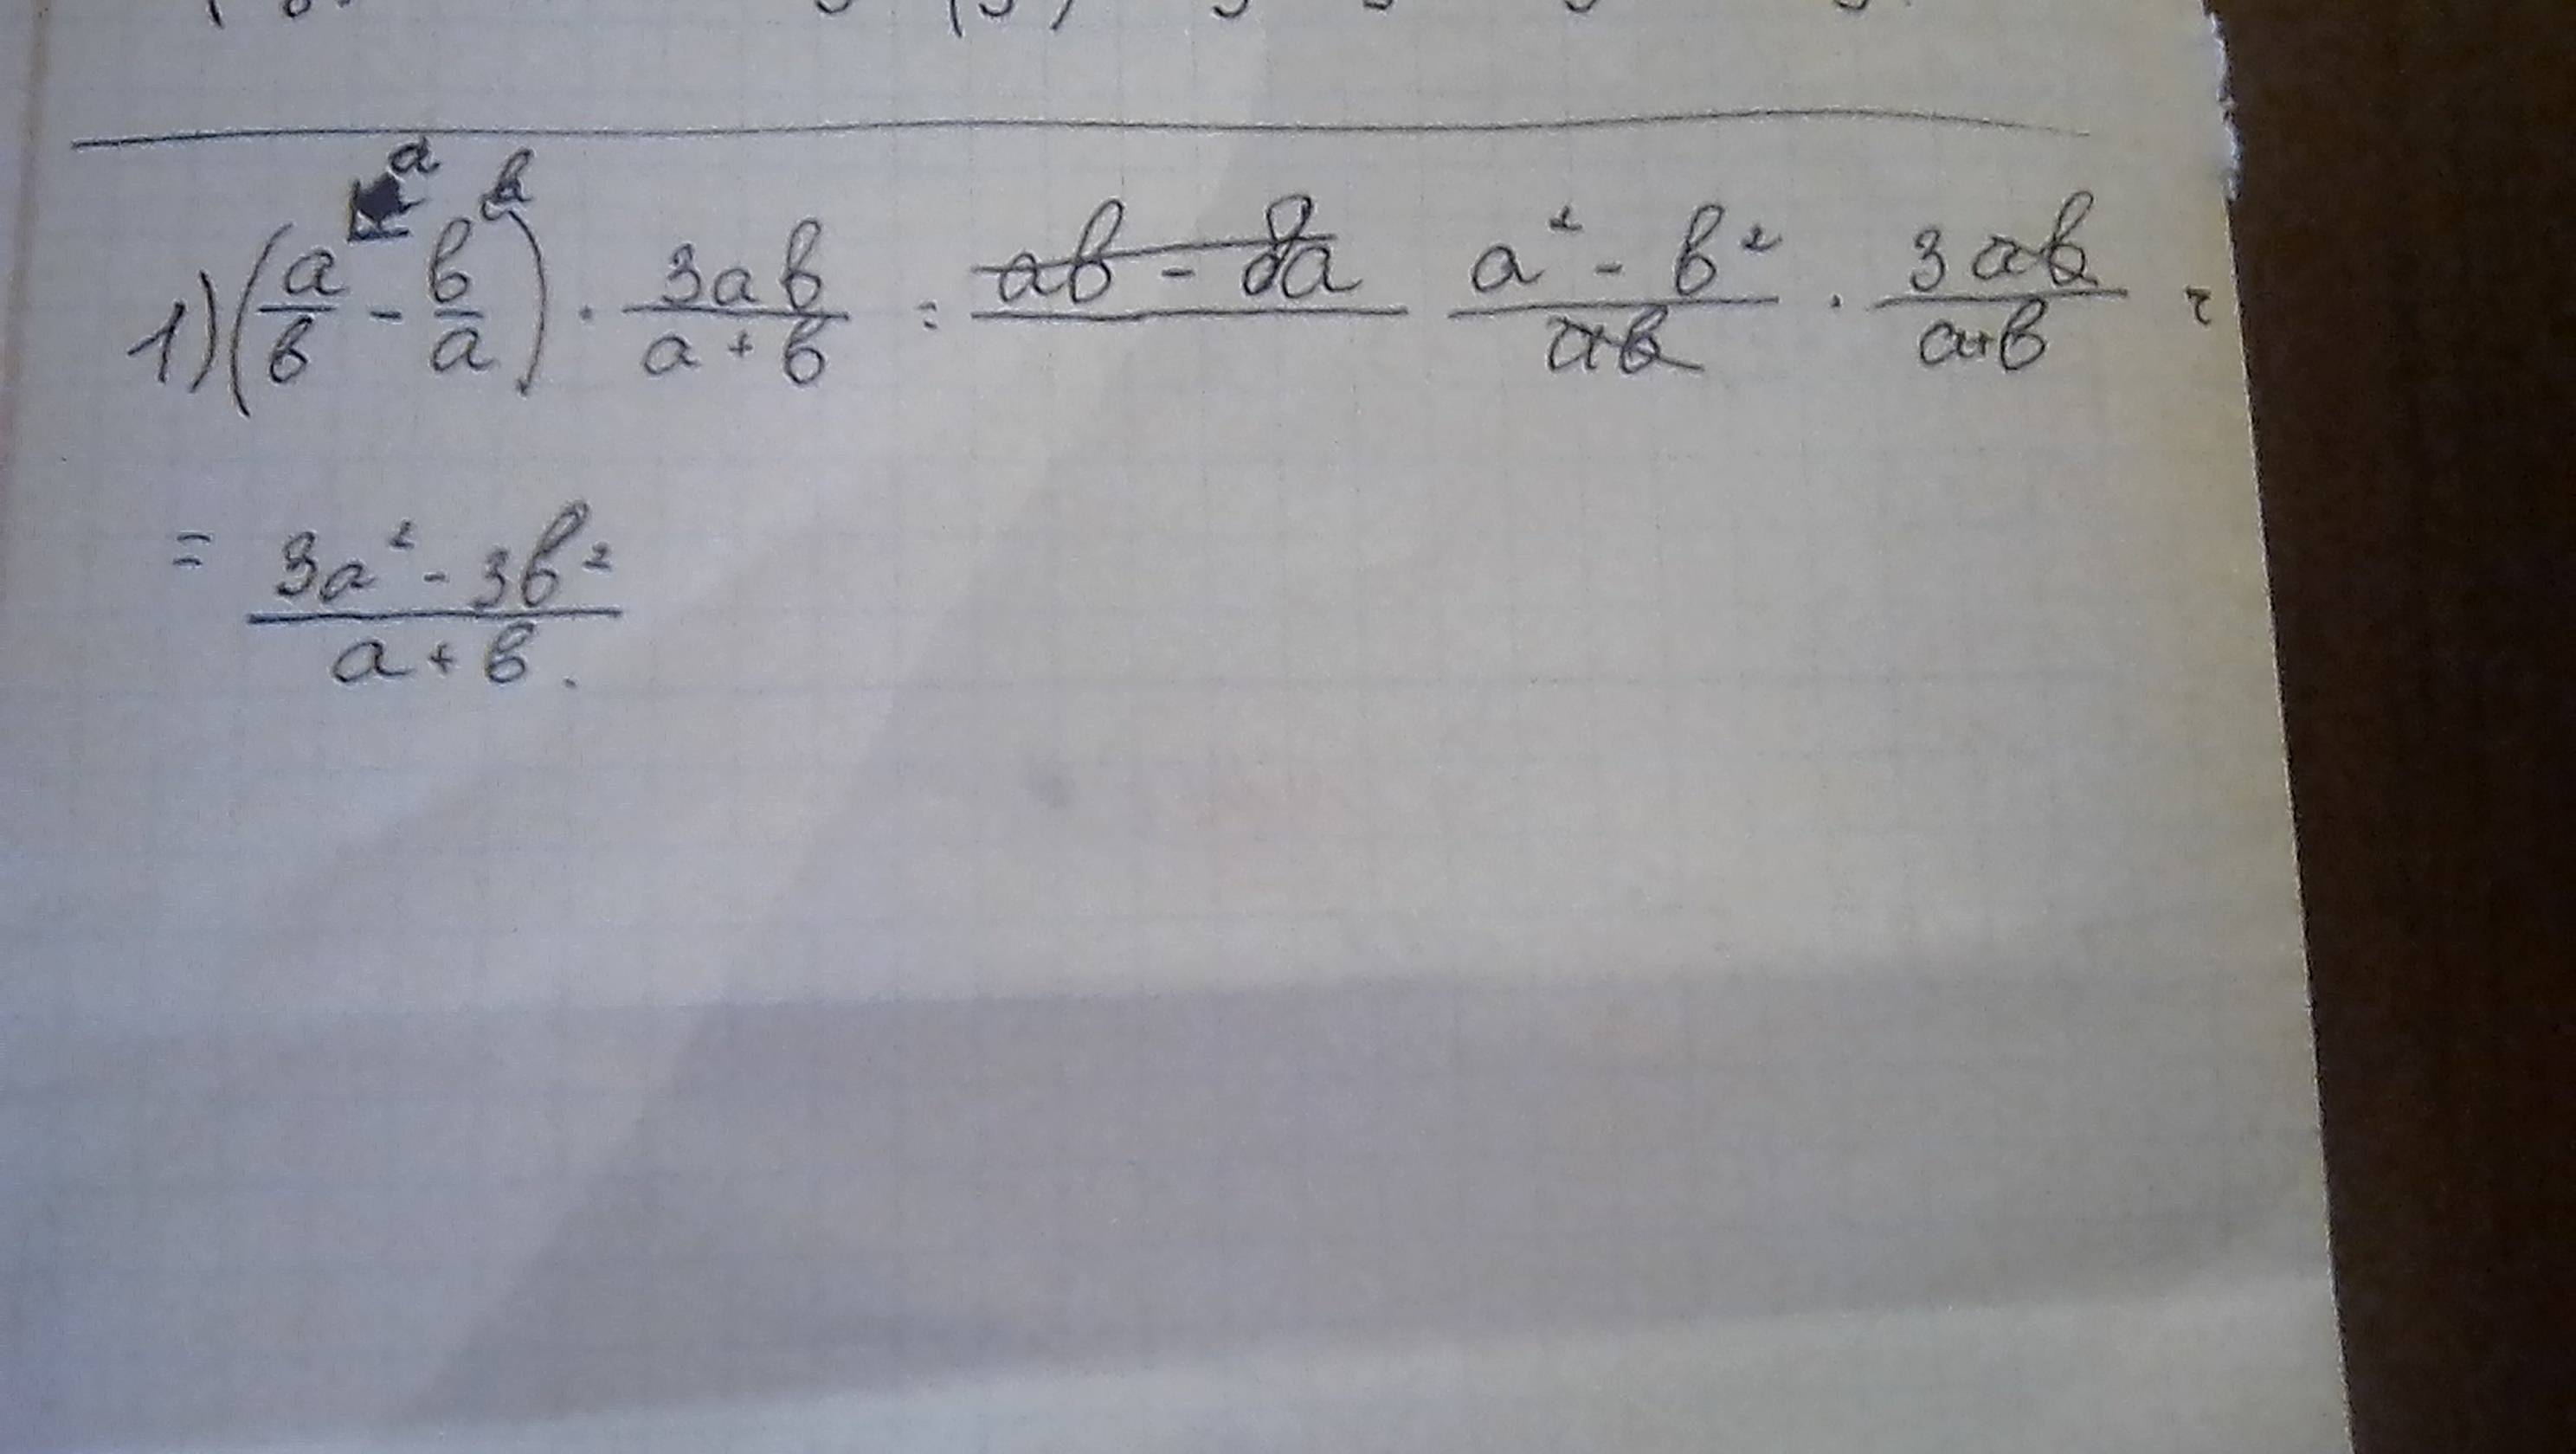 1) (a/b - b/a) · 3ab/(a+b) = ab - ba (a² - b²)/ab · 3ab/(a+b) =
= (3a² - 3b²)/(a+b).